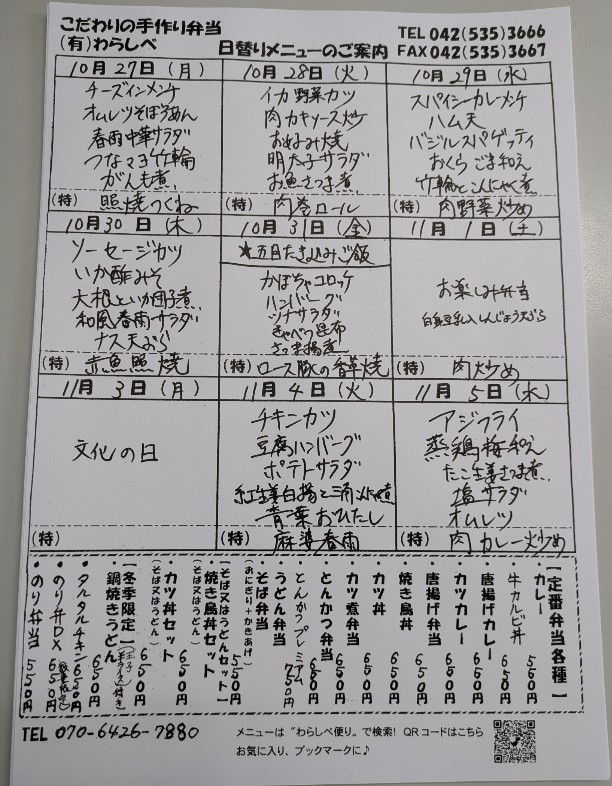 こだわりの手作り弁当
(有)わらしべ
日替りメニューのご案内
TEL 042(535)3666
FAX 042(535)3667
10月27日(月)
チーズインメンチ
オムレツそぼろあん
春雨中華サラダ
つなマヨ竹輪
がんも煮
(特) 照焼つくね
10月28日(火)
イカ野菜カツ
肉カキソース炒ケ
お好み焼
明太子サラダ
お魚さつま煮
(特) 肉巻ロール
10月29日(水)
スパイシーカレーメンチ
ハム天
バジルスパゲッティ
おくらごま和え
竹輪とこんにゃく煮
(特) 肉野菜炒め
10月30日(木)
ソーセージカツ
いか酢みそ
大根といか団子煮
和風春雨サラダ
ナス天ぷら
(特) 赤魚照焼
10月31日(金)
★五目たき込みご飯
かぼちゃコロッケ
ハンバーグ
ツナサラダ
きゃべつ昆布
さつま揚煮
(特) ロース豚の香草焼
11月1日(土)
お楽しみ弁当
白身豆乳入しんじょう天ぷら
(特) 肉炒め
11月3日(月)
文化の日
(特)
11月4日(火)
チキンカツ
豆腐ハンバーグ
ポテトサラダ
紅生姜白揚と三角こんにゃく煮
青菜おひたし
(特) 麻婆春雨
11月5日(水)
アジフライ
蒸鶏梅和え
たこ生姜さつま煮
塩サラダ
オムレツ
(特) 肉カレー炒め
【定番弁当各種】
・カレー 550円
・牛カルビ丼 650円
・唐揚げカレー 650円
・カツカレー 650円
・唐揚げ弁当 650円
・焼き鳥丼 650円
・カツ丼 650円
・カツ煮弁当 650円
・とんかつ弁当 650円
・とんかつプレミアム 750円
・うどん弁当
・そば弁当
(おにぎり+かきあげ) 550円
【そば又はうどんセット】
・焼き鳥丼セット 650円
(そば又はうどん)
・カツ丼セット 650円
(そば又はうどん)
【冬季限定】
鍋焼きうどん 650円
・タルタルチキン 650円
・のり弁DX 650円
・のり弁当 550円
TEL 070-6426-7880
メニューは"わらしべ便り"で検索! QRコードはこちら
お気に入り、ブックマークに♪